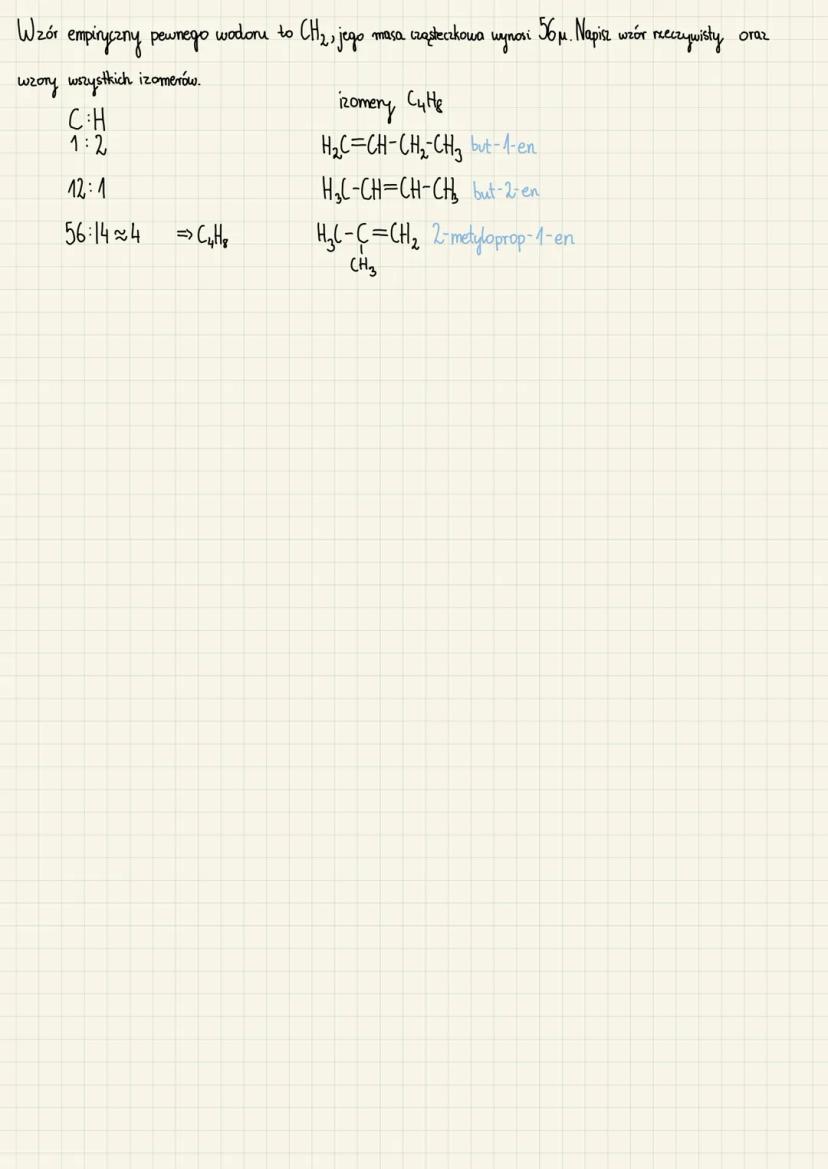 Wzór empiryczny pewnego wodoru to CH₂, jego masa cząsteczkowa wynosi 56μ. Napisz wzór rzeczywisty oraz
wzory wszystkich izomerów.
C:H
1:2
12:1
56:14≈4 ⇒ C₄H₈
izomery C₄H₈
H₂C=CH-CH₂-CH₃ but-1-en
H₃C-CH=CH-CH₃ but-2-en
H₃C-C=CH₂ 2-metyloprop-1-en
CH₃